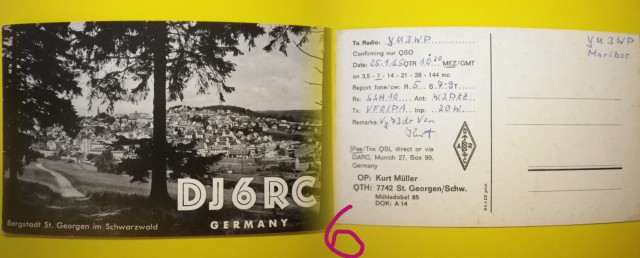 DJ6RC
GERMANY
Bergstadt St. Georgen im Schwarzwald
To Radio: YU3WP
Confirming our QSO
Date: 25.1.65 QTR MEZ/GMT
on 3,5 - 7 - 14 - 21 - 28 - 144 mc
Report fone/cw: R. 5 S. 7-9 T.
Rx: Ant: W3DZZ
Tx: Inp: 20 W
Remarks: Vy 73 dr Ven
Pse/Tnx QSL direct or via
DARC, Munich 27, Box 99,
Germany
OP: Kurt Müller
QTH: 7742 St. Georgen/Schw.
Mühladobel 85
DOK: A 14
DARC
YU3WP
Maribor
6